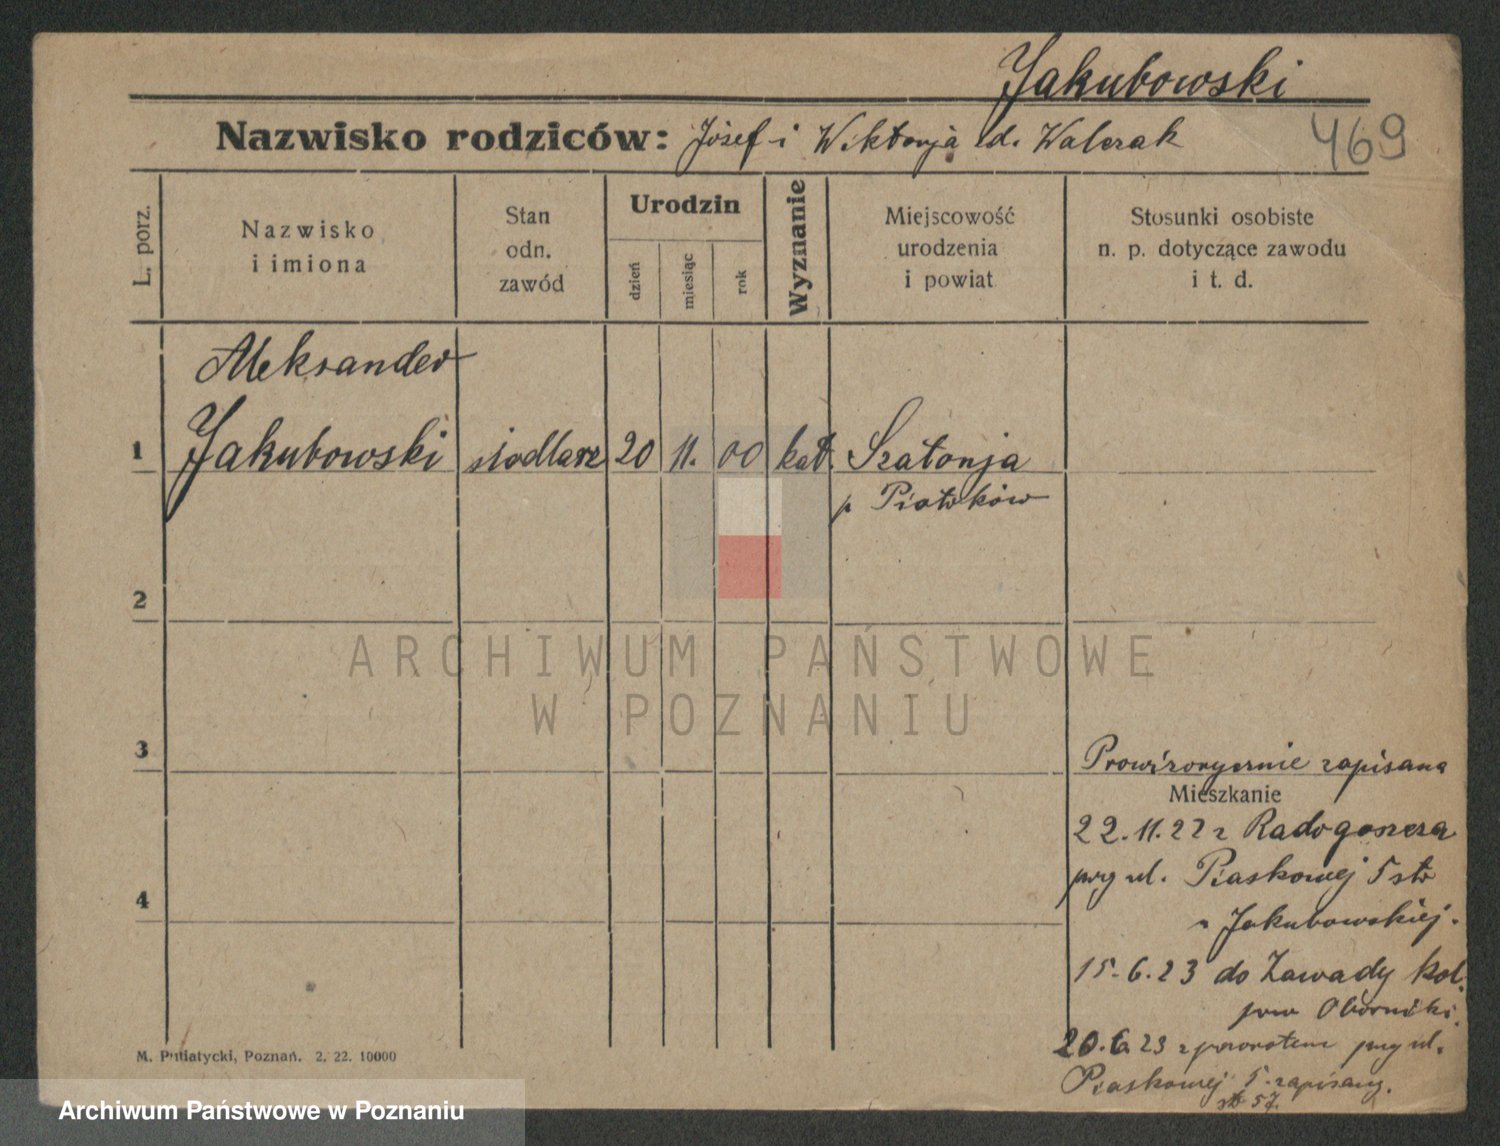 Jakubowski
Nazwisko rodziców: Józef i Wiktorja d. Walczak
469
L. porz.
Nazwisko
i imiona
Stan
odn.
zawód
Urodzin
dzień
miesiąc
rok
Wyznanie
Miejscowość
urodzenia
i powiat
Stosunki osobiste
n. p. dotyczące zawodu
i t. d.
Aleksander
1 Jakubowski siodlarz 20 11. 00 kat. Szatonja
p Piotrków
2
ARCHIWUM PAŃSTWOWE
W POZNANIU
3
Prowizorycznie zapisana
Mieszkanie
22.11.22 z Radogoszcza
przy ul. Piaskowej 5 str
Jakubowskiej.
4
15.6.23 do Zawady kol.
pow Oborniki.
20.6.23 z powrotem przy ul.
Piaskowej 5. zapisany.
str 57.
M. Putiatycki, Poznań. 2. 22. 10000
Archiwum Państwowe w Poznaniu